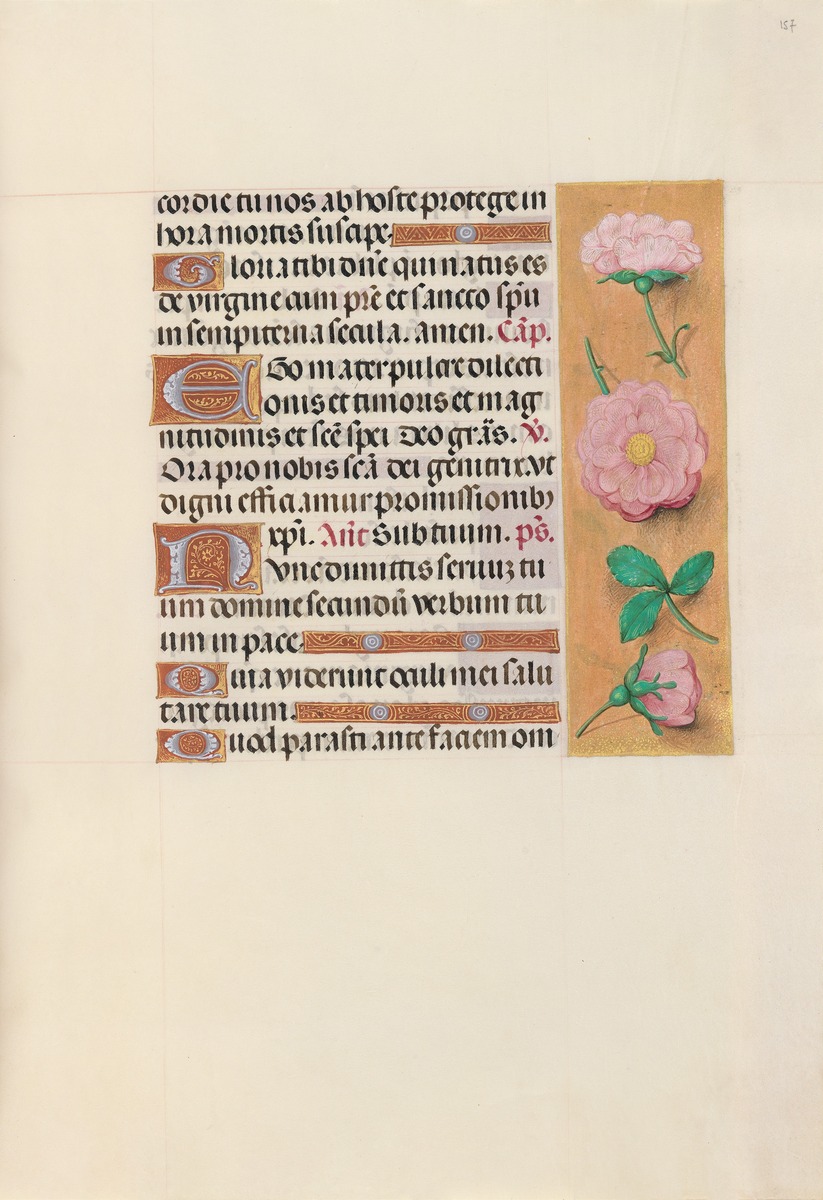 157
cordie tu nos ab hoste protege in
hora mortis suscipe.
Gloria tibi dñe qui natus es
de virgine cum prẽ et sancto spũ
in sempiterna secula. amen. Cãp.
EGo mater pulcre dilecti
onis et timoris et mag
nitudinis et scẽ spei Deo grãs. V̉.
Ora pro nobis scã dei genitrix. Vt
digni efficiamur promissionibꝫ
xp̃i. Añt Sub tuum. p̃s.
NVnc dimittis seruuʒ tu
um domine secundũ verbum tu
um in pace.
Quia viderunt oculi mei salu
tare tuum.
Quod parasti ante faciem om